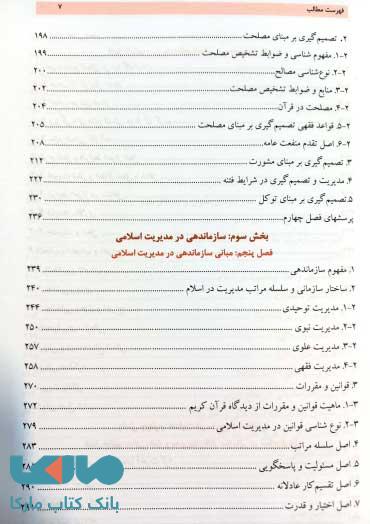 فهرست مطالب ۷
۲. تصمیم‌گیری بر مبنای مصلحت ۱۹۸
۲-۱. مفهوم شناسی و ضوابط تشخیص مصلحت ۱۹۹
۲-۲. نوع‌شناسی مصالح ۲۰۰
۲-۳. منابع و ضوابط تشخیص مصلحت ۲۰۲
۲-۴. مصلحت در قرآن ۲۰۴
۲-۵. قواعد فقهی تصمیم‌گیری بر مبنای مصلحت ۲۰۵
۲-۶. اصل تقدم منفعت عامه ۲۰۸
۳. تصمیم‌گیری بر مبنای مشورت ۲۱۲
۴. مدیریت و تصمیم‌گیری در شرایط فتنه ۲۲۲
۵.تصمیم‌گیری بر مبنای توکل ۲۳۰
پرسشهای فصل چهارم ۲۳۶
بخش سوم: سازماندهی در مدیریت اسلامی
فصل پنجم: مبانی سازماندهی در مدیریت اسلامی
۱. مفهوم سازماندهی ۲۳۹
۲. ساختار سازمانی و سلسله مراتب مدیریت در اسلام ۲۴۰
۲-۱. مدیریت توحیدی ۲۴۴
۲-۲. مدیریت نبوی ۲۵۰
۲-۳. مدیریت علوی ۲۵۷
۲-۴. مدیریت فقهی ۲۵۸
۳. قوانین و مقررات ۲۷۰
۳-۱. ماهیت قوانین و مقررات از دیدگاه قرآن کریم ۲۷۲
۳-۲. نوع شناسی قوانین در مدیریت اسلامی ۲۷۹
۴. اصل سلسله مراتب ۲۸۳
۵. اصل مسئولیت و پاسخگویی
۶. اصل تقسیم‌کار عادلانه ۲۹۰
۷. اصل اختیار و قدرت
مارکا
بانک کتاب مارکا